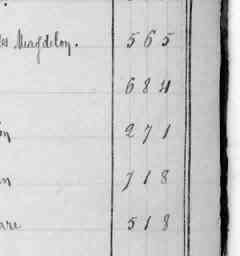 es Magdelon. 565
684
on 271
n 718
are 518